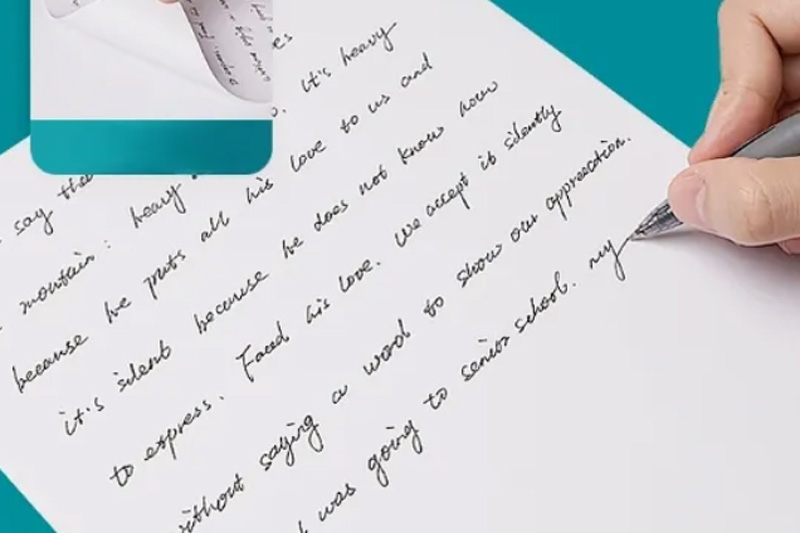 es
say tha
it's heavy
mountain: heavy
because he puts all his love to us and
it's silent because he does not know how
to express. Faced his love. We accept it silently
without saying a word to show our appreection.
I was going to senior school. my